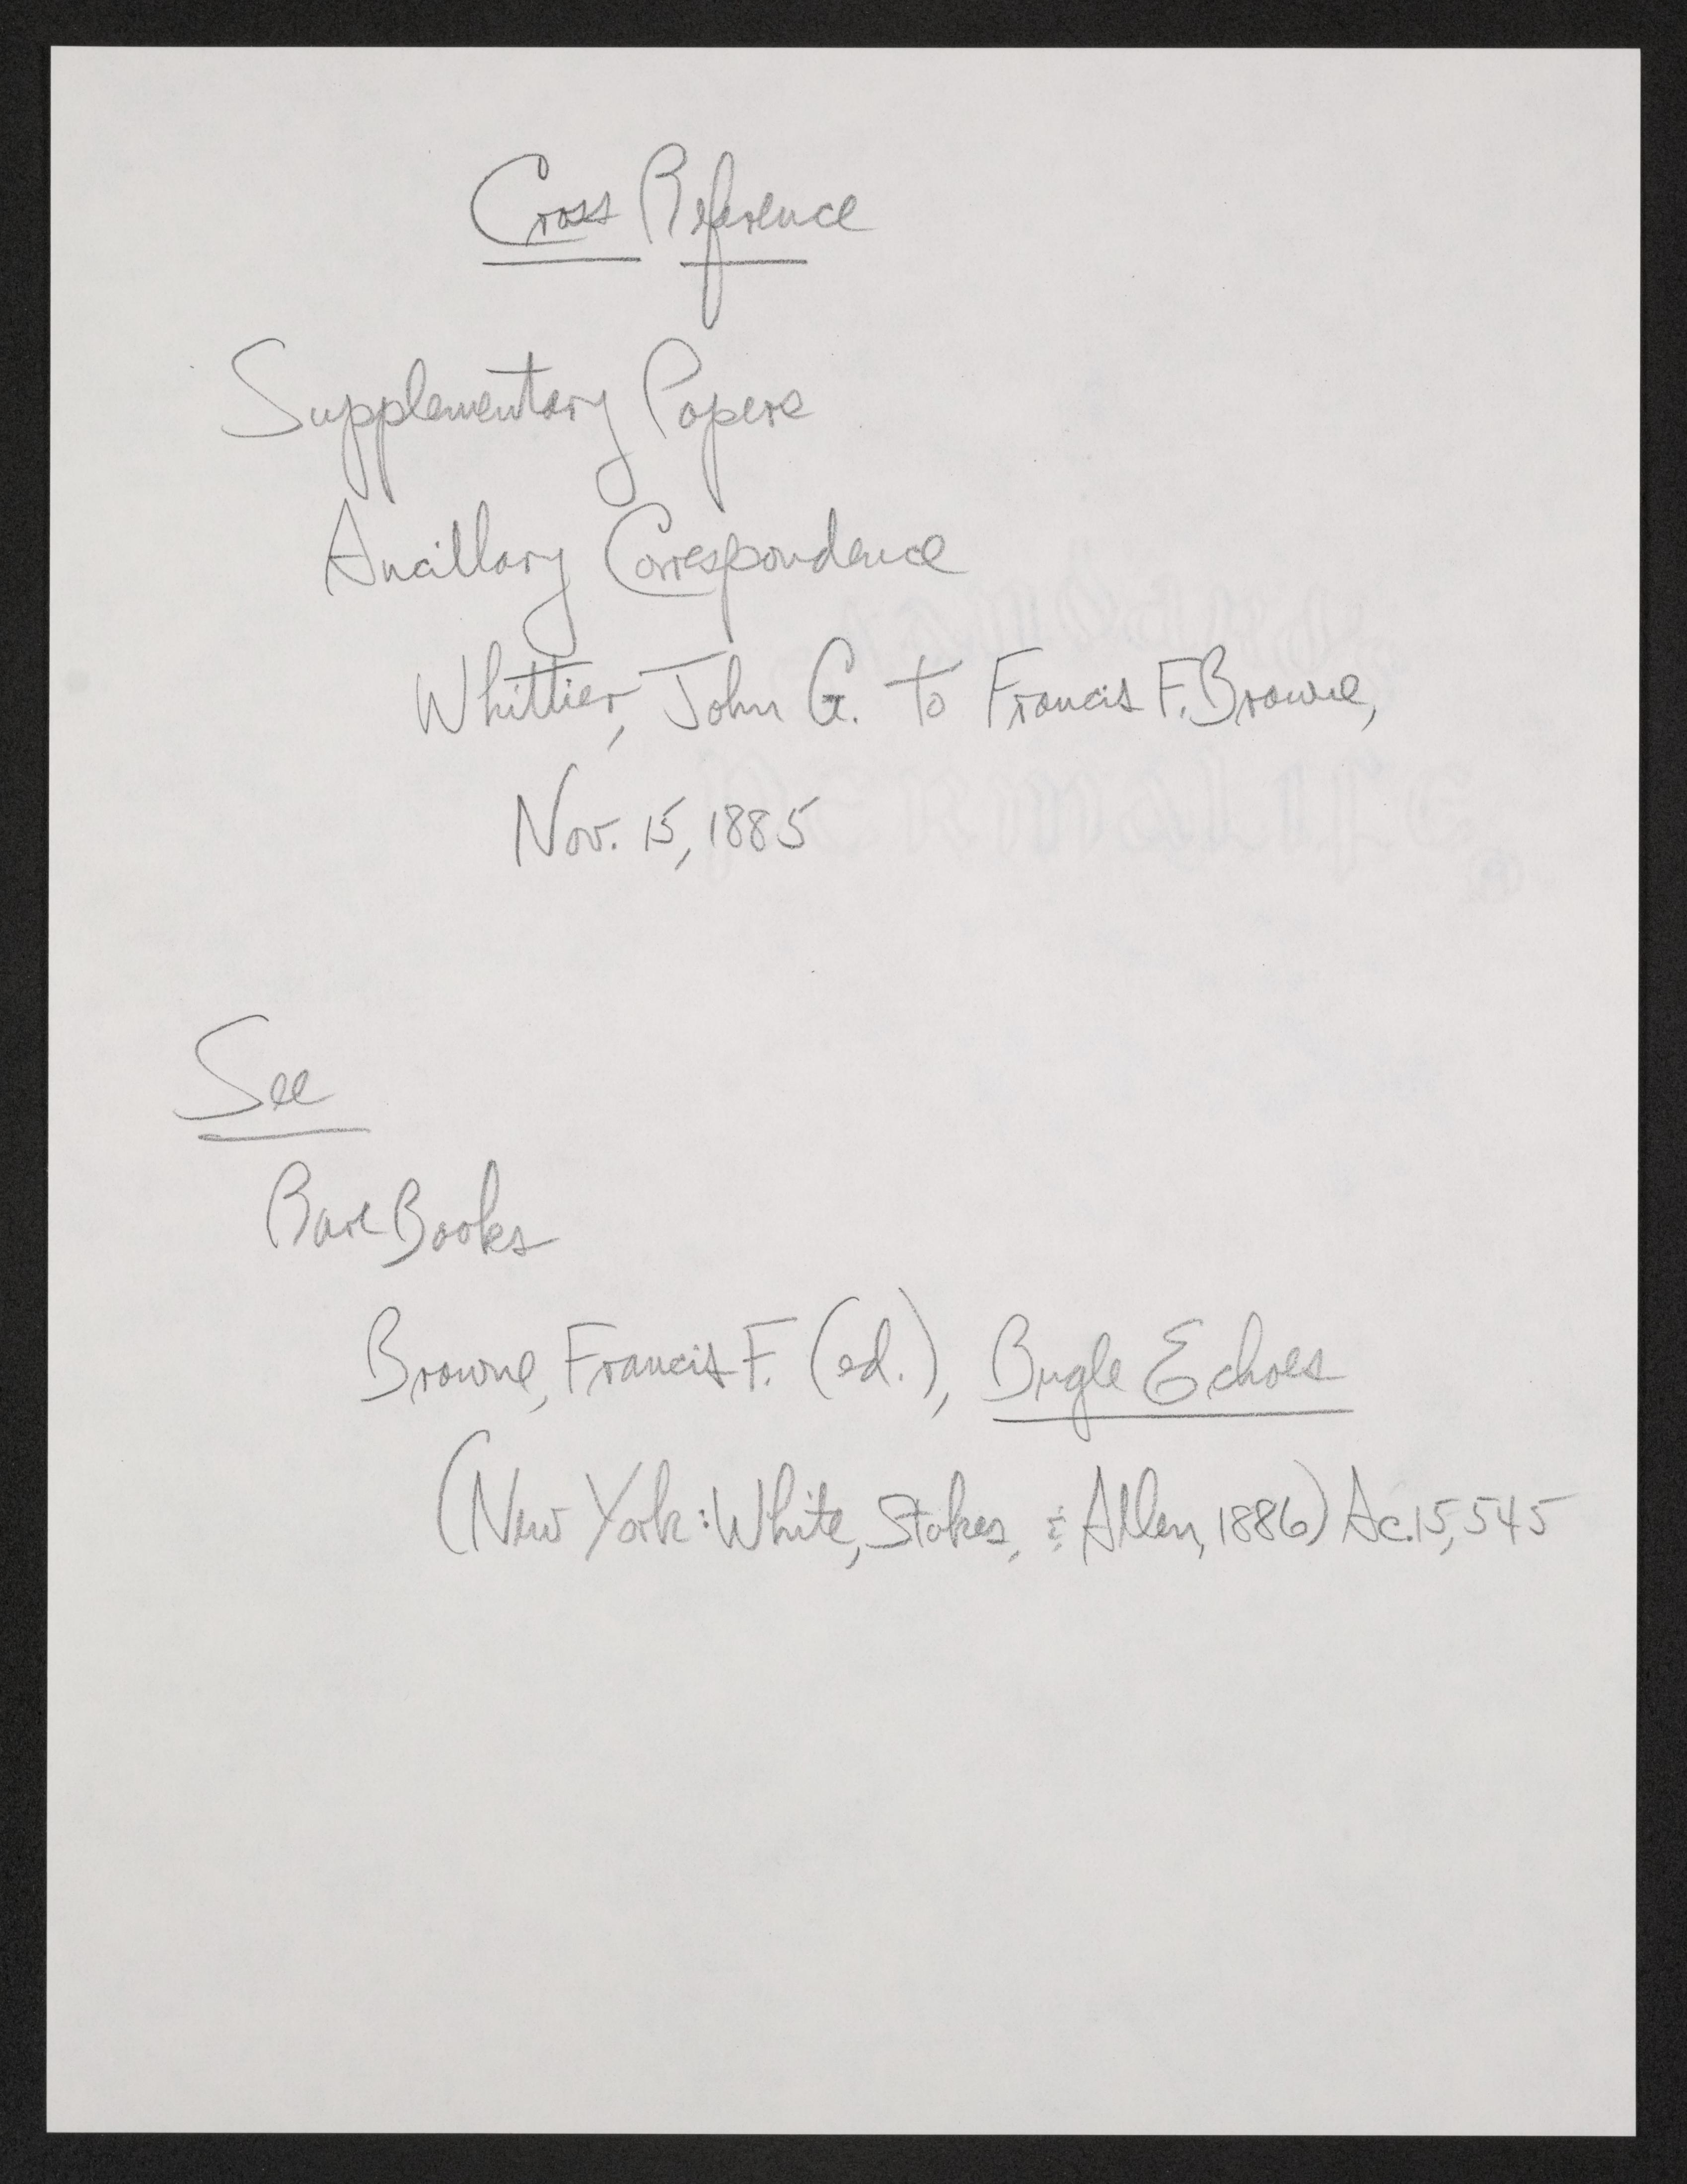 Cross Reference
Supplementary Papers
Ancillary Correspondence
Whittier, John G. to Francis F. Browne,
Nov. 15, 1885
See
Rare Books
Browne, Francis F. (ed.), Bugle Echoes
(New York: White, Stokes, & Allen, 1886) Ac. 15,545